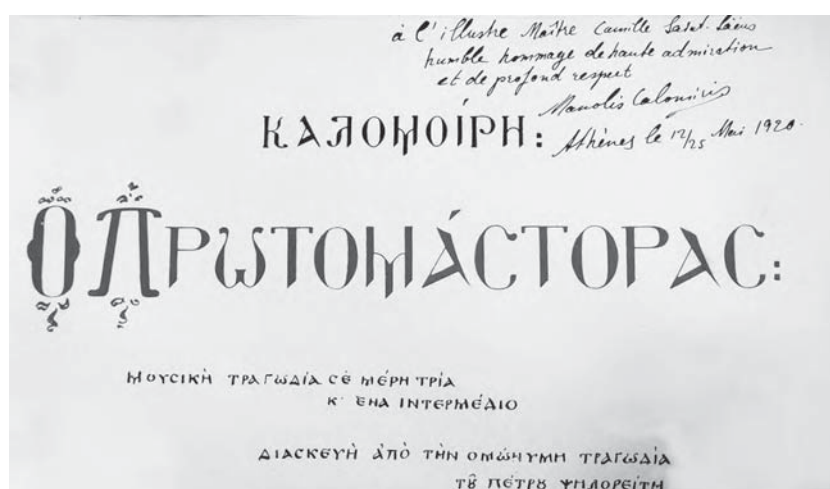 à l'illustre Maître Camille Saint-Saëns
humble hommage de haute admiration
et de profond respect
Manolis Calomiris
Athènes le 12/25 Mai 1920.
ΚΑΛΟΜΟΙΡΗ:
Ὁ ΠΡΩΤΟΜΆΣΤΟΡΑΣ:
ΜΟΥΣΙΚῊ ΤΡΑΓΩΔΊΑ ΣῈ ΜΈΡΗ ΤΡΊΑ
Κ' ἝΝΑ ΙΝΤΕΡΜΈΔΙΟ
ΔΙΑΣΚΕΥῊ ἈΠῸ ΤῊΝ ΟΜΏΝΥΜΗ ΤΡΑΓΩΔΊΑ
ΤΟΥ͂ ΠΈΤΡΟΥ ΨΗΛΟΡΕΊΤΗ